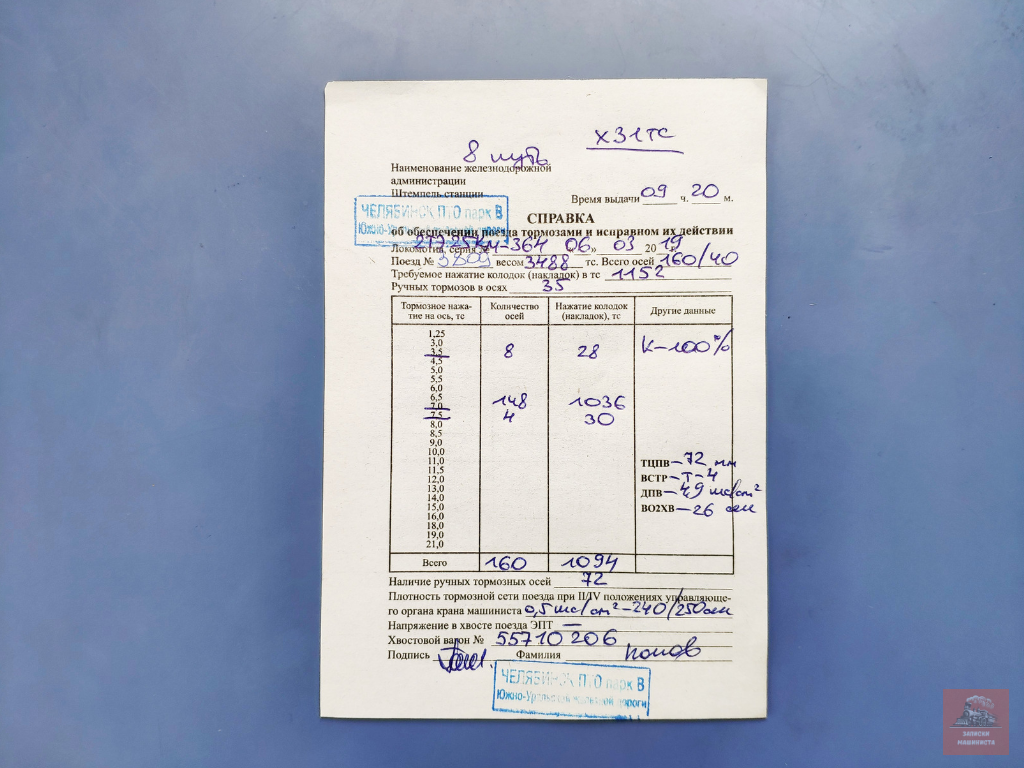 ХЗ1ТС
8 путь
Наименование железнодорожной
администрации
Штемпель станции
Время выдачи 09 ч. 20 м.
ЧЕЛЯБИНСК ПТО парк В
Южно-Уральской железной дороги
СПРАВКА
об обеспечении поезда тормозами и исправном их действии
Локомотив, серия № «06» 03 2019
Поезд № весом 3488 тс. Всего осей 160/40
Требуемое нажатие колодок (накладок) в тс 1152
Ручных тормозов в осях 35
Тормозное нажа- Количество Нажатие колодок Другие данные
тие на ось, тс осей (накладок), тс
1,25
3,0
3,5 8 28 К-100%
4,5
5,0
5,5
6,0
6,5
7,0 148 1036
7,5 4 30
8,0
8,5
9,0
10,0
11,0 ТЦПВ-72 мм
11,5
12,0 ВСТР-Т-4
13,0 ДПВ-4,9 кгс/см²
14,0
15,0 ВО2ХВ-26 сек
16,0
18,0
19,0
21,0
Всего 160 1094
Наличие ручных тормозных осей 72
Плотность тормозной сети поезда при II/IV положениях управляюще-
го органа крана машиниста 0,5 кгс/см²-240/250сек
Напряжение в хвосте поезда ЭПТ —
Хвостовой вагон № 55710206
Подпись Фамилия Попов
ЧЕЛЯБИНСК ПТО парк В
Южно-Уральской железной дороги
ЗАПИСКИ
МАШИНИСТА